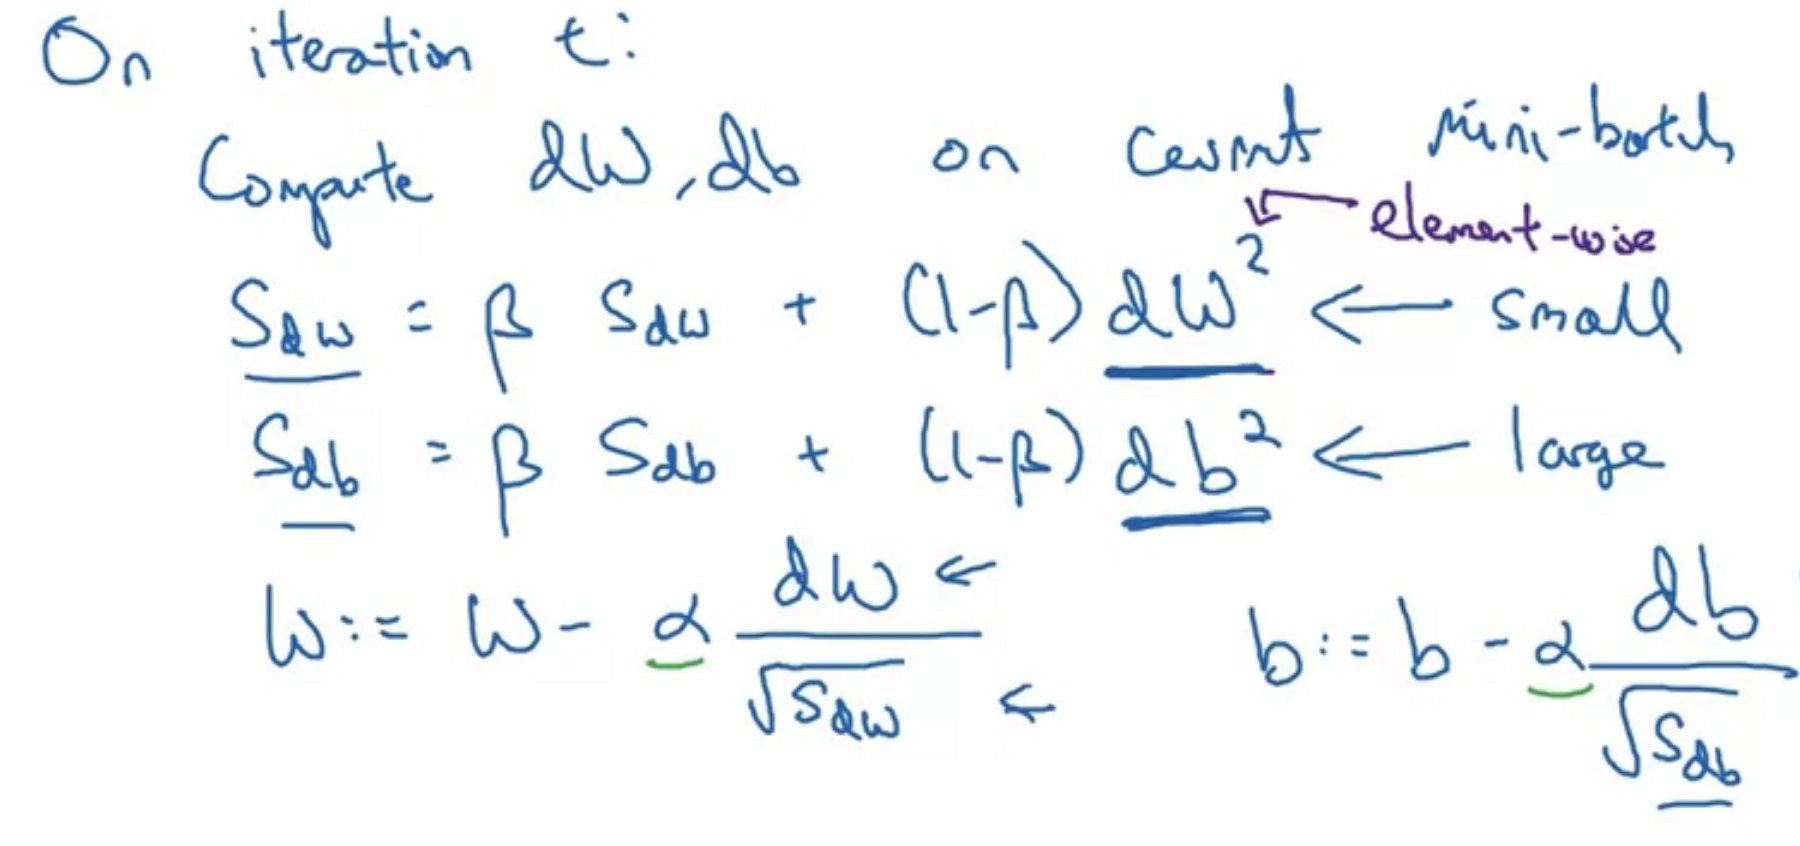 On iteration t:
Compute dW, db on current mini-batch
element-wise
S_dw = β S_dw + (1-β) dW² ← small
S_db = β S_db + (1-β) db² ← large
W := W - α dW / √S_dw ← ← b := b - α db / √S_db